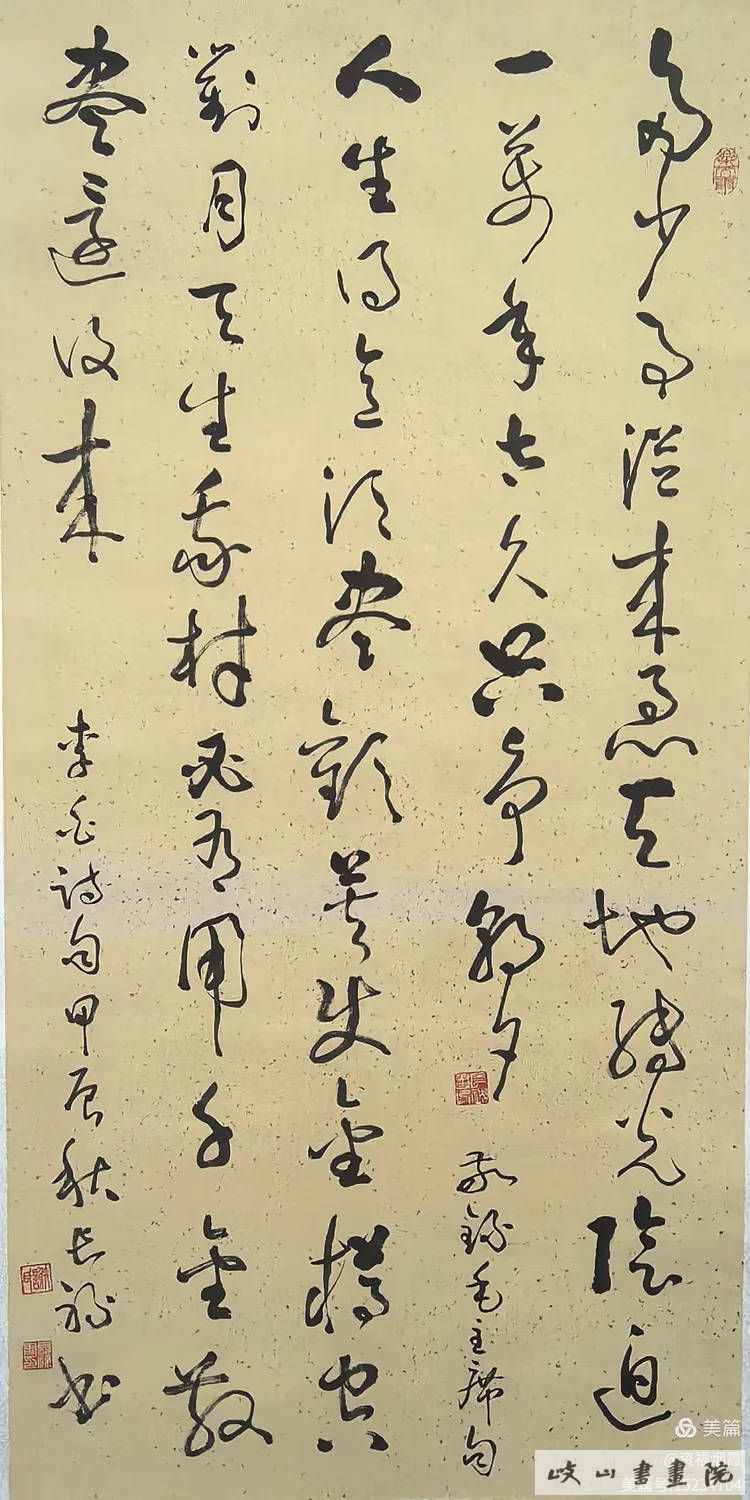 多少事從来急天地轉光陰迫
一萬年太久只争朝夕
敬錄毛主席句
人生得意須盡歡莫使金樽空
對月天生我材必有用千金散
盡還復来
李白詩句甲辰秋长福书
美篇
@资福烟霞
岐山書畫院